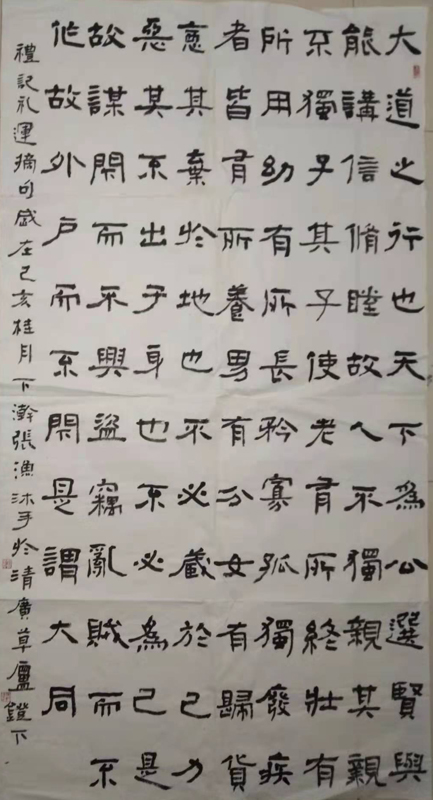 大道之行也天下為公選賢與
能講信脩睦故人不獨親其親
不獨子其子使老有所終壯有
所用幼有所長矜寡孤獨廢疾
者皆有所養男有分女有歸貨
惡其棄於地也不必藏於己力
惡其不出于身也不必為己是
故謀閉而不興盜竊亂賊而不
作故外戶而不閉是謂大同
禮記礼運摘句歲在己亥桂月下澣張漁沐手於清廣草廬鐙下